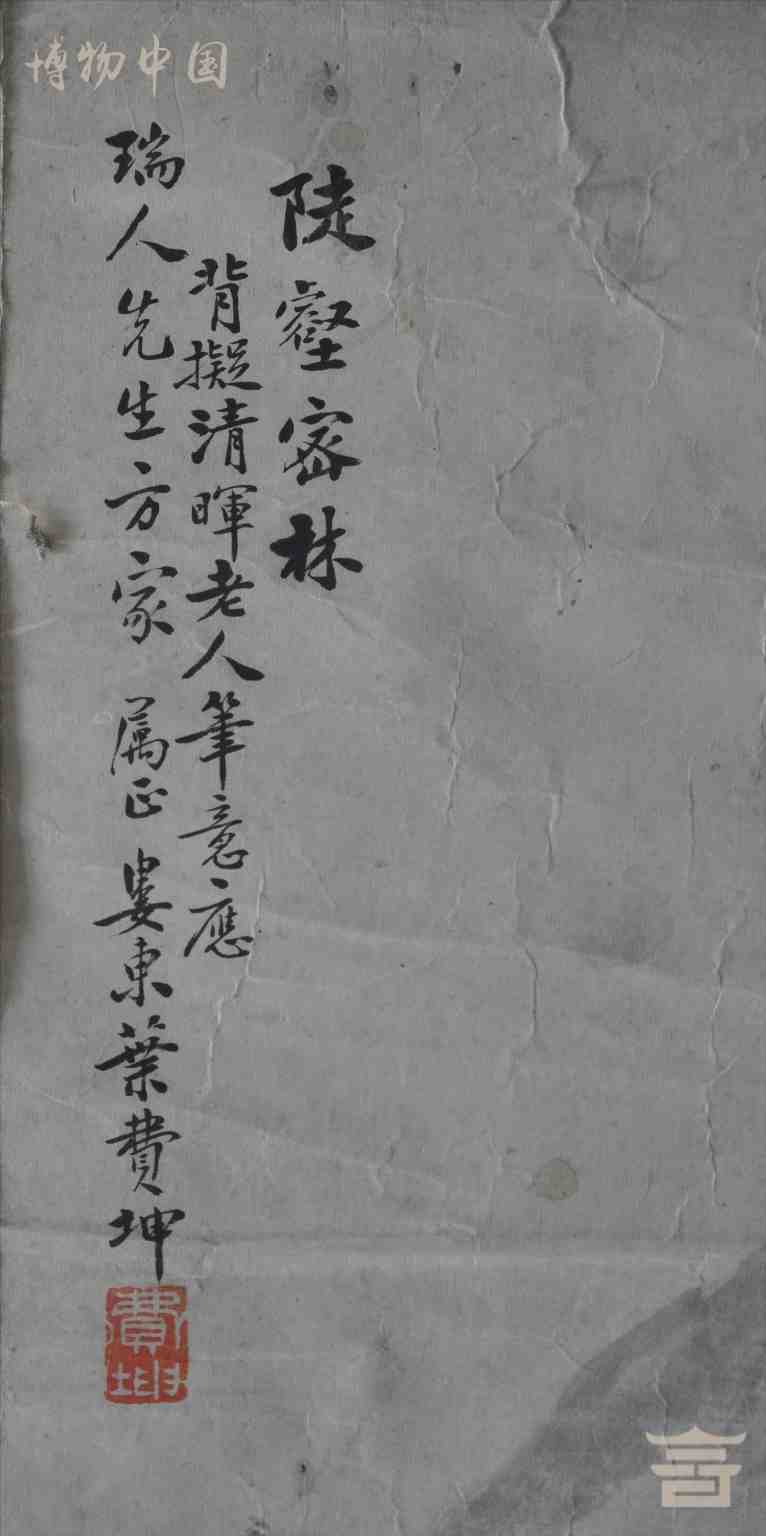 博物中国
陡壑密林
背擬清暉老人筆意應
瑞人先生方家 属正 婁東葉費坤
費坤